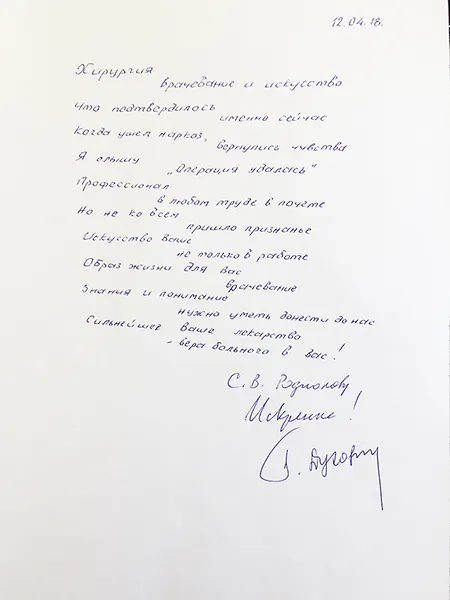 12.04.18.
Хирургия
врачевание и искусство
Что подтвердилось
именно сейчас
Когда ушел наркоз,
вернулись чувства
Я слышу
„Операция удалась“
Профессионал
в любом труде в почете
Но не ко всем
пришло признанье
Искусство ваше
не только в работе
Образ жизни для вас
врачевание
Знания и понимание
нужно уметь донести до нас
Сильнейшее ваше лекарство
- вера больного в вас!
С.В. Родионову
Искренне!